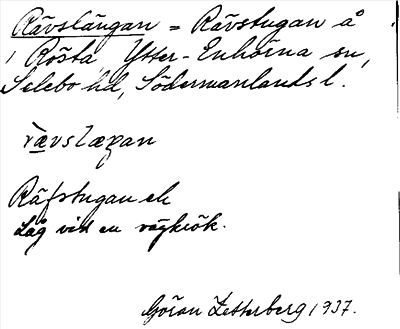 Rävslängan = Rävstugan å
i Rösta, Ytter-Enhörna sn,
Selebo hd, Södermanlands l.
Räfstugan el.
Låg vid en vägkrök.
Göran Zetterberg 1937.